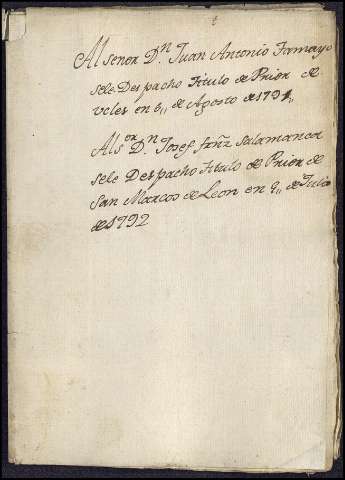 Al señor D.n Juan Antonio Tamayo
sele Despacho Titulo de Prior de
Ucles en 5,, de Agosto de 1791,,
Al s.or D.n Josef frñz Salamanca
sele Despacho Titulo de Prior de
San Marcos de Leon en 9,, de Julio
de 1792